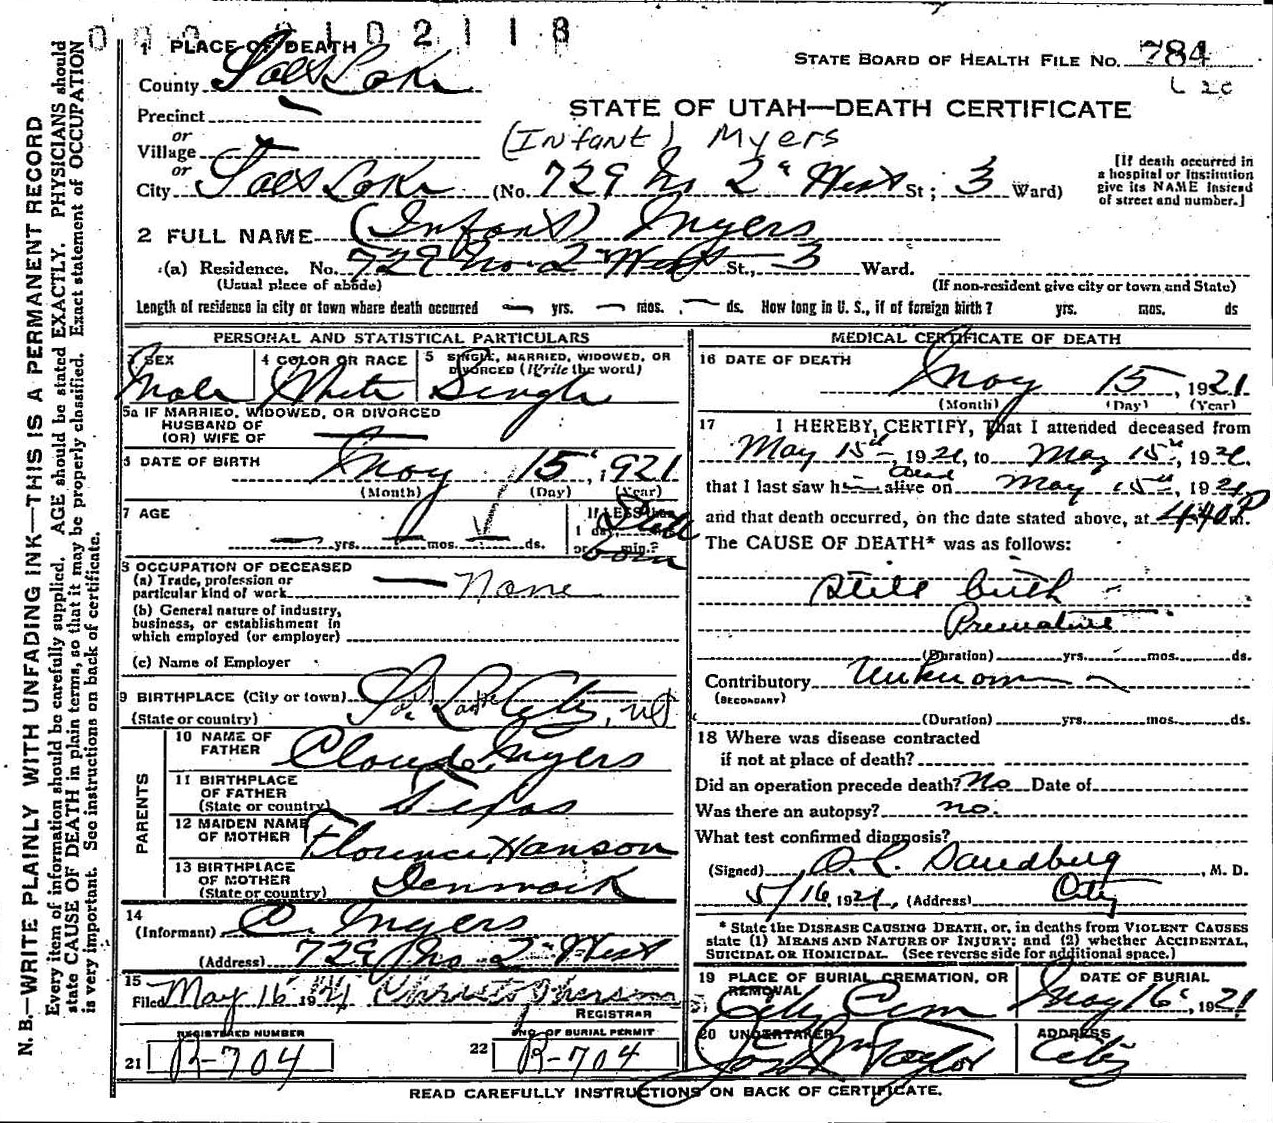 2102118
1 PLACE OF DEATH
STATE BOARD OF HEALTH FILE NO. 784
County Salt Lake
Precinct
STATE OF UTAH—DEATH CERTIFICATE
or
Village
(Infant) Myers
or
City Salt Lake (No. 729 No 2" West St; 3 Ward)
[If death occurred in
a hospital or institution
give its NAME instead
of street and number.]
2 FULL NAME (Infant) Myers
(a) Residence. No. 729 No. 2" West St., 3 Ward.
(Usual place of abode)
(If non-resident give city or town and State)
Length of residence in city or town where death occurred — yrs. — mos. — ds. How long in U. S., if of foreign birth? yrs. mos. ds
PERSONAL AND STATISTICAL PARTICULARS
3 SEX
Male
4 COLOR OR RACE
White
5 SINGLE, MARRIED, WIDOWED, OR
DIVORCED (Write the word)
Single
5a IF MARRIED, WIDOWED, OR DIVORCED
HUSBAND OF
(OR) WIFE OF
6 DATE OF BIRTH May 15", 1921
(Month) (Day) (Year)
7 AGE
— yrs. — mos. — ds.
If LESS than
1 da
or min.?
Still
born
8 OCCUPATION OF DECEASED
(a) Trade, profession or
particular kind of work — None
(b) General nature of industry,
business, or establishment in
which employed (or employer)
(c) Name of Employer
9 BIRTHPLACE (City or town) Salt Lake City, Ut
(State or country)
PARENTS
10 NAME OF
FATHER Claude Myers
11 BIRTHPLACE
OF FATHER
(State or country) Texas
12 MAIDEN NAME
OF MOTHER Florence Hanson
13 BIRTHPLACE
OF MOTHER
(State or country) Denmark
14
(Informant) C. Myers
(Address) 729 No 2" West
15
Filed May 16" 1921
REGISTRAR
REGISTERED NUMBER
21 R-704
NO. OF BURIAL PERMIT
22 R-704
MEDICAL CERTIFICATE OF DEATH
16 DATE OF DEATH
May 15, 1921
(Month) (Day) (Year)
17 I HEREBY CERTIFY, That I attended deceased from
May 15th, 1921, to May 15th, 1921.
that I last saw him alive on May 15th, 1921
Dead
and that death occurred, on the date stated above, at 4.40 P m.
The CAUSE OF DEATH* was as follows:
Still birth
Premature
(Duration) yrs. mos. ds.
Contributory Unknown
(SECONDARY)
(Duration) yrs. mos. ds.
18 Where was disease contracted
if not at place of death?
Did an operation precede death? No Date of
Was there an autopsy? no.
What test confirmed diagnosis?
(Signed) O. L. Sandberg, M. D.
5/16, 1921, (Address) City
* State the DISEASE CAUSING DEATH, or, in deaths from VIOLENT CAUSES
state (1) MEANS AND NATURE OF INJURY; and (2) whether ACCIDENTAL,
SUICIDAL OR HOMICIDAL. (See reverse side for additional space.)
19 PLACE OF BURIAL, CREMATION, OR
REMOVAL
City Cem
DATE OF BURIAL
May 16", 1921
20 UNDERTAKER
Jos Wm Taylor
ADDRESS
City
READ CAREFULLY INSTRUCTIONS ON BACK OF CERTIFICATE.
N. B.—WRITE PLAINLY WITH UNFADING INK—THIS IS A PERMANENT RECORD
Every item of information should be carefully supplied. AGE should be stated EXACTLY. PHYSICIANS should
state CAUSE OF DEATH in plain terms, so that it may be properly classified. Exact statement of OCCUPATION
is very important. See instructions on back of certificate.